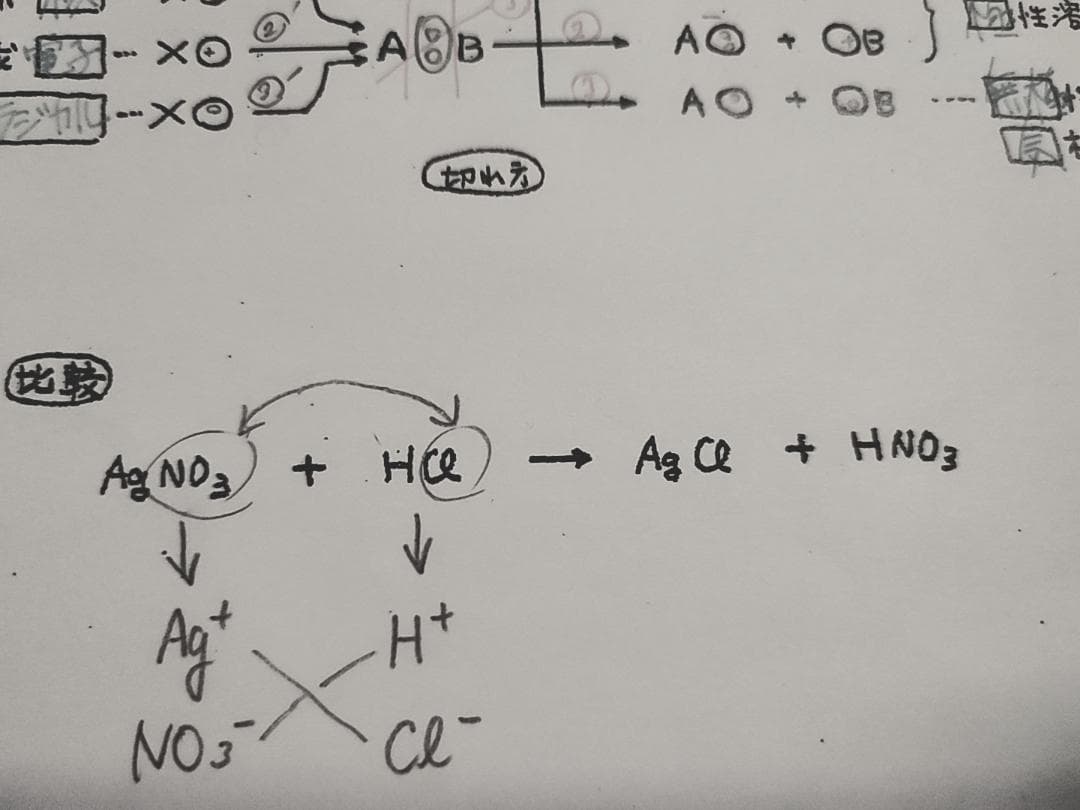 電子 … X⊕ ②′ A B ② A + B } 性溶
ラジカル … X⊖ ③′ ③ A + B …. 無極性
切れ方
比較
AgNO₃ + HCl → AgCl + HNO₃
Ag⁺ H⁺
NO₃⁻ Cl⁻